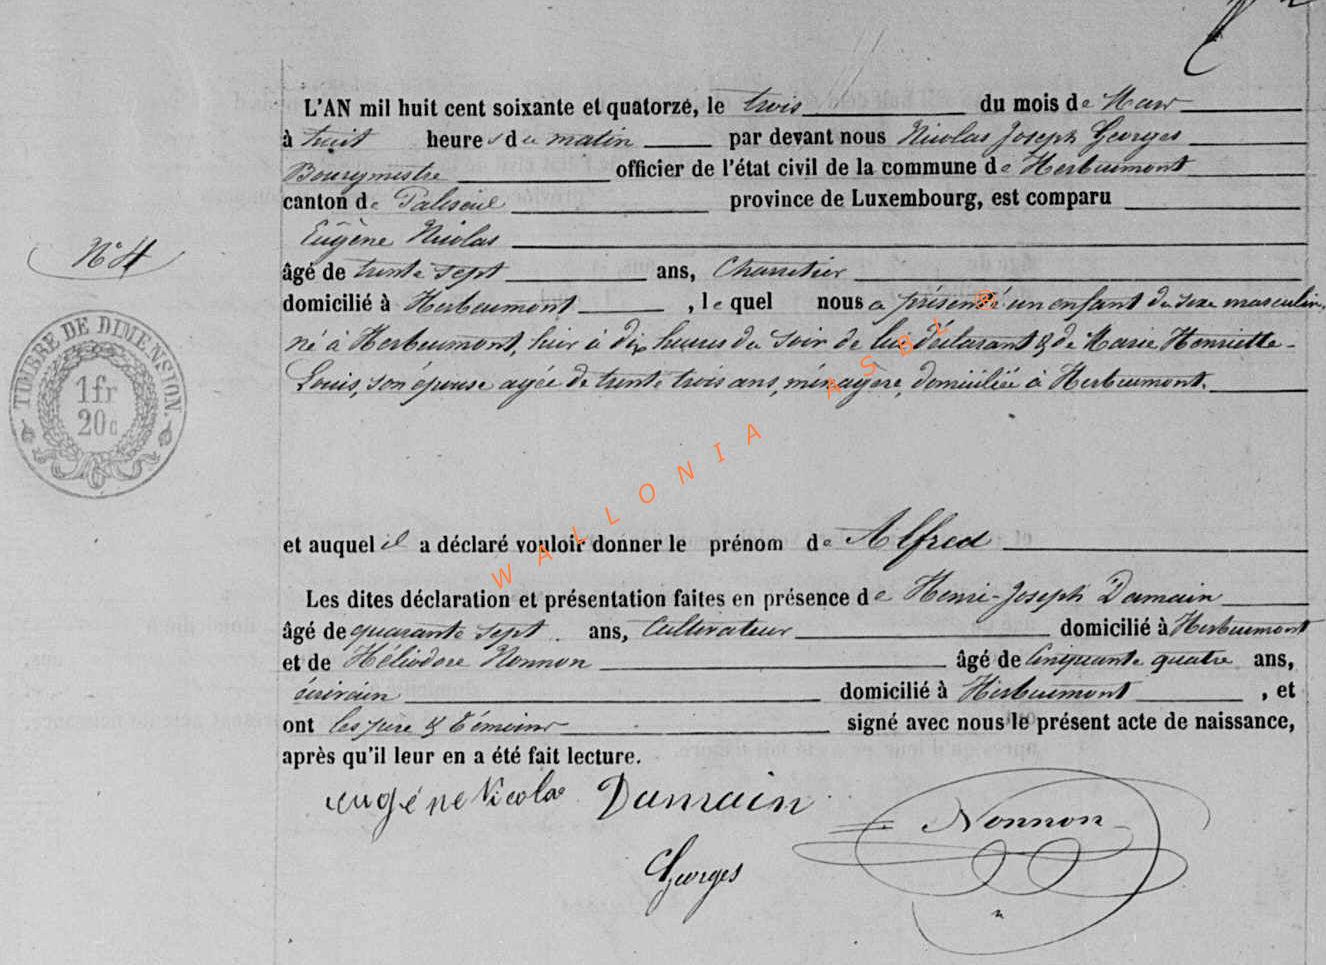 L'AN mil huit cent soixante et quatorze, le trois du mois de Mars
à huit heures du matin par devant nous Nicolas Joseph Georges
Bourgmestre officier de l'état civil de la commune de Herbeumont
canton de Paliseul province de Luxembourg, est comparu
Eugène Nicolas
N° 4
âgé de trente sept ans, Charretier
domicilié à Herbeumont, lequel nous a présenté un enfant du sexe masculin,
né à Herbeumont, hier à dix heures du soir de lui déclarant & de Marie Henriette-
Louis, son épouse agée de trente trois ans, ménagère, domiciliée à Herbeumont.
TIMBRE DE DIMENSION.
1fr
20c
WALLONIA ASBL ®
et auquel il a déclaré vouloir donner le prénom de Alfred
Les dites déclaration et présentation faites en présence de Henri-Joseph Damain
âgé de quarante sept ans, Cultivateur domicilié à Herbeumont
et de Héliodore Nonnon âgé de Cinquante quatre ans,
écrivain domicilié à Herbeumont, et
ont les père & témoins signé avec nous le présent acte de naissance,
après qu'il leur en a été fait lecture.
eugéne Nicolas Damain Nonnon
Georges